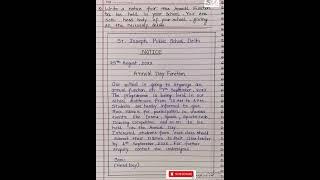 Write a notice for the Annual Function
to be held in your school. You are
head boy of your school, giving
all the necessary details.
St. Joseph Public School, Delhi
NOTICE
25th August, 2022
Annual Day Function
Our school is going to organize an
annual function on 7th September, 2022.
The programme is being held in our
school Auditorium from 10 AM to 4 PM.
Students are hereby informed to give
their names for participation in various
events like Drama, Dance, Speech,
Drawing Competition and so on to be
held on the Annual Day.
Interested students from each class should
submit their names to their class teacher
by 4th September, 2022. For further
enquiry contact the undersigned.
(Head Boy)
SUBSCRIBE